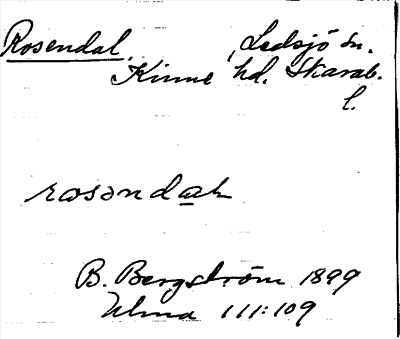 Rosendal, Ledsjö sn.
Kinne hd. Skarab.
l.
rosəndaḷ
B. Bergström 1899
Ulma 111:109